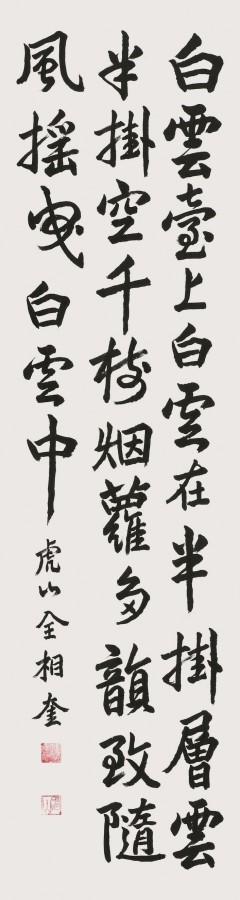 白雲臺上白雲在半掛層雲
半掛空千樹烟蘿多韻致隨
風搖曳白雲中
虎山全相奎